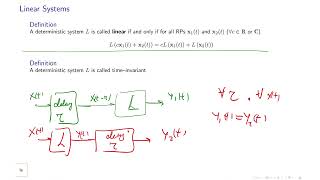 Linear Systems
Definition
A deterministic system L is called linear if and only if for all RPs x₁(t) and x₂(t) (∀c ∈ ℝ or ℂ)
L (cx₁(t) + x₂(t)) = cL (x₁(t)) + L (x₂(t))
Definition
A deterministic system L is called time-invariant
x(t) delay τ x(t-τ) L y₁(t) ∀ τ , ∀ x(t)
y₁(t) = y₂(t)
x(t) L y(t) delay τ y₂(t)